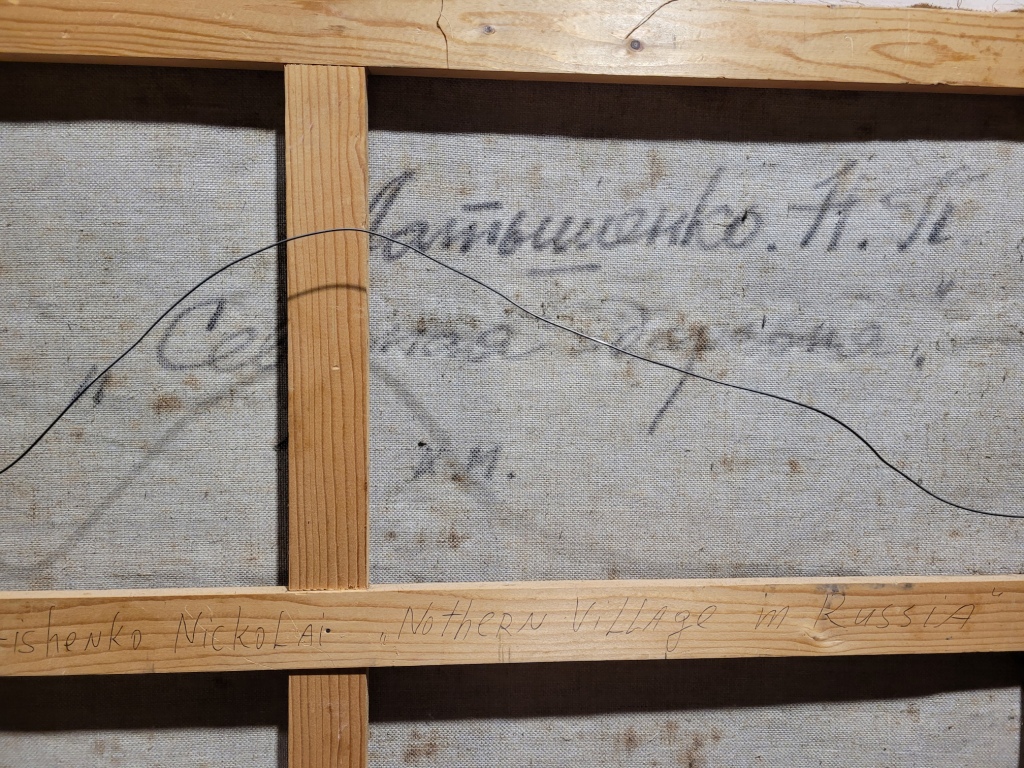 Латышенко. Н. П.
"Северная деревня".
х.м.
ishenko Nickolai. „Nothern Village in Russia"